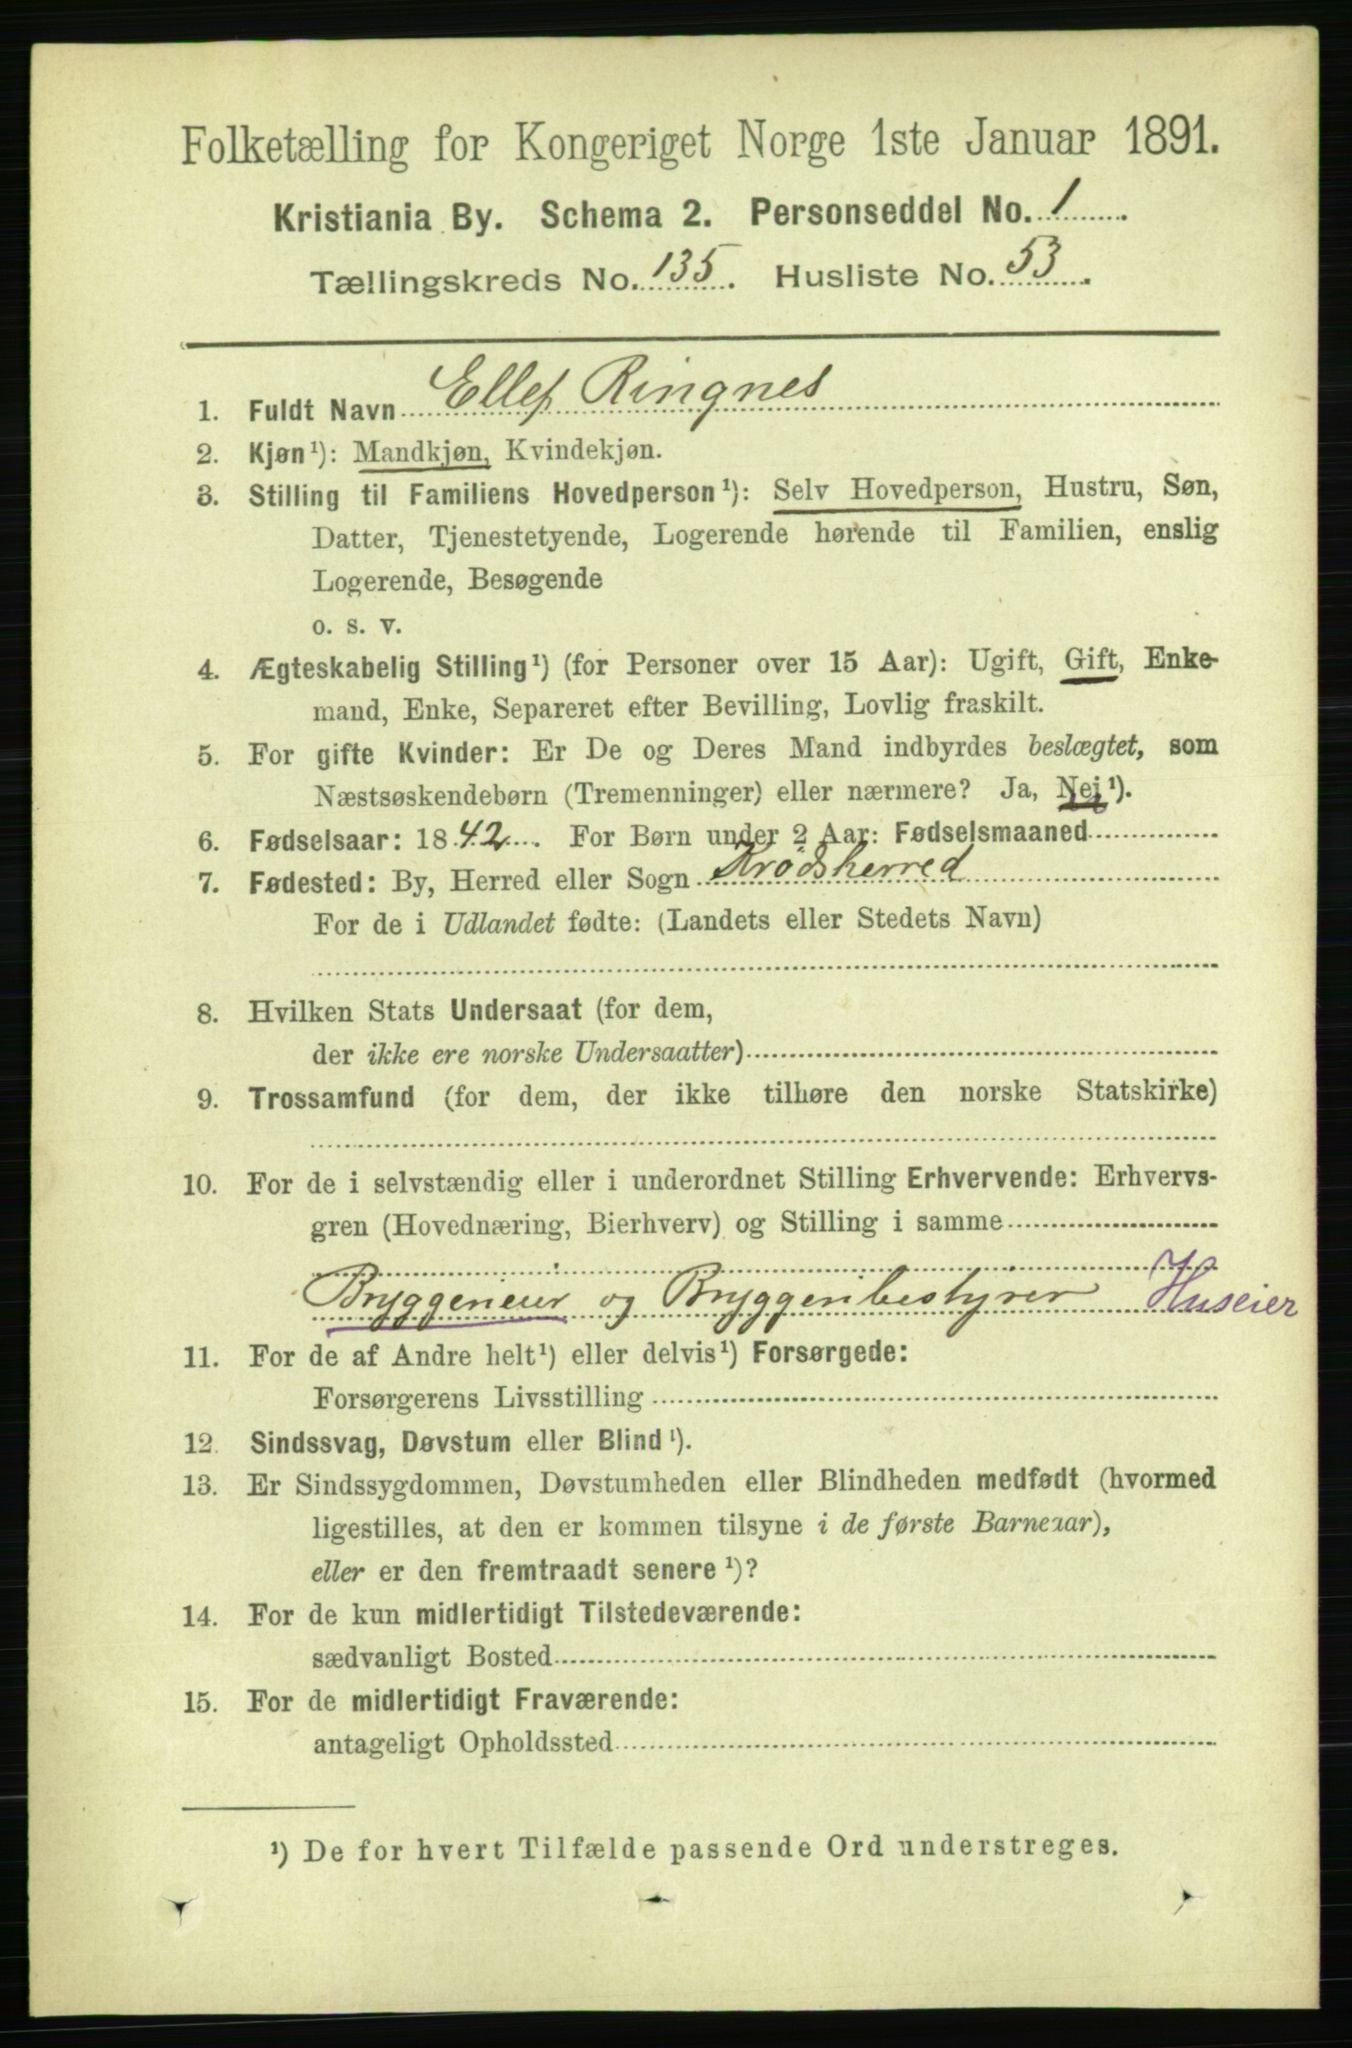 Folketælling for Kongeriget Norge 1ste Januar 1891.
Kristiania By. Schema 2. Personseddel No. 1.
Tællingskreds No. 135. Husliste No. 53.
1. Fuldt Navn Ellef Ringnes
2. Kjøn¹): Mandkjøn, Kvindekjøn.
3. Stilling til Familiens Hovedperson¹): Selv Hovedperson, Hustru, Søn,
Datter, Tjenestetyende, Logerende hørende til Familien, enslig
Logerende, Besøgende
o. s. v.
4. Ægteskabelig Stilling¹) (for Personer over 15 Aar): Ugift, Gift, Enke-
mand, Enke, Separeret efter Bevilling, Lovlig fraskilt.
5. For gifte Kvinder: Er De og Deres Mand indbyrdes beslægtet, som
Næstsøskendebørn (Tremenninger) eller nærmere? Ja, Nei¹).
6. Fødselsaar: 1842. For Børn under 2 Aar: Fødselsmaaned
7. Fødested: By, Herred eller Sogn Krødsherred
For de i Udlandet fødte: (Landets eller Stedets Navn)
8. Hvilken Stats Undersaat (for dem,
der ikke ere norske Undersaatter)
9. Trossamfund (for dem, der ikke tilhøre den norske Statskirke)
10. For de i selvstændig eller i underordnet Stilling Erhvervende: Erhvervs-
gren (Hovednæring, Bierhverv) og Stilling i samme
Bryggerieier og Bryggeribestyrer Huseier
11. For de af Andre helt¹) eller delvis¹) Forsørgede:
Forsørgerens Livsstilling
12. Sindssvag, Døvstum eller Blind¹).
13. Er Sindssygdommen, Døvstumheden eller Blindheden medfødt (hvormed
ligestilles, at den er kommen tilsyne i de første Barneaar),
eller er den fremtraadt senere¹)?
14. For de kun midlertidigt Tilstedeværende:
sædvanligt Bosted
15. For de midlertidigt Fraværende:
antageligt Opholdssted
¹) De for hvert Tilfælde passende Ord understreges.